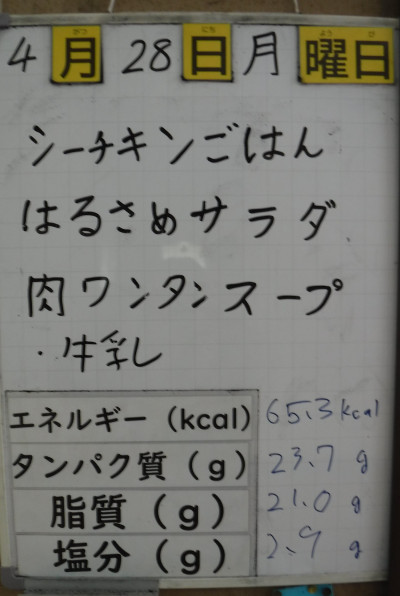 4月28日月曜日
シーチキンごはん
はるさめサラダ
肉ワンタンスープ
・牛乳
エネルギー(kcal) 653kcal
タンパク質(g) 23.7g
脂質(g) 21.0g
塩分(g) 2.9g